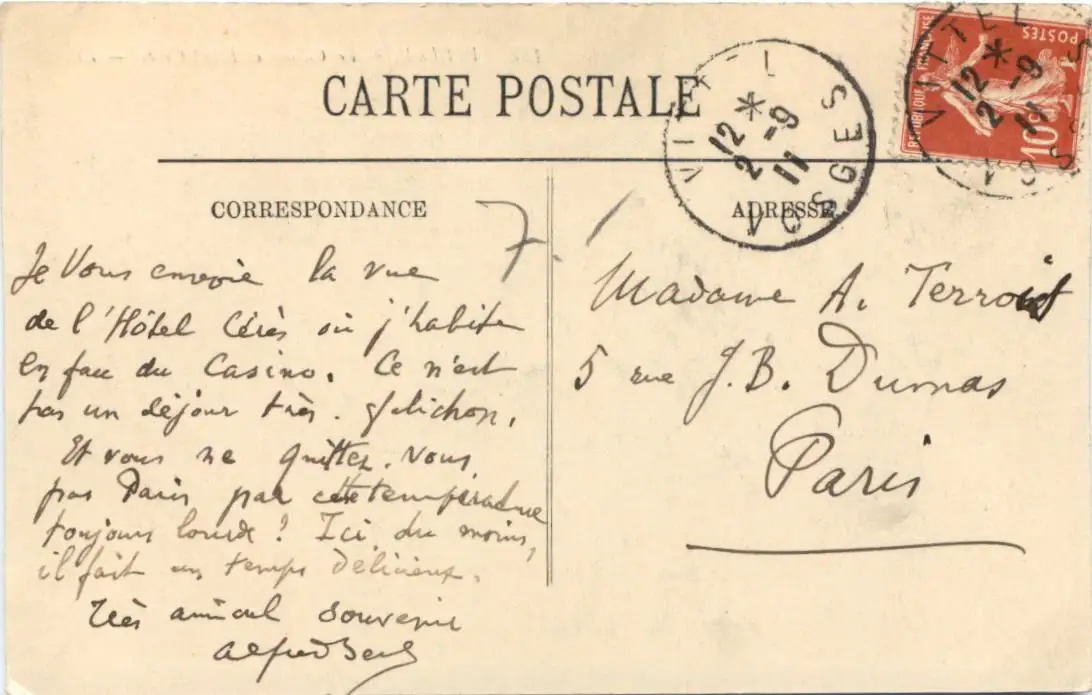 CARTE POSTALE
CORRESPONDANCE
ADRESSE
VITTEL
12 *
2 -9
11
VOSGES
REPUBLIQUE FRANÇAISE
POSTES
10c
VITTEL
12 *
2 -9
11
7.
Je Vous envoie la vue
de l'Hôtel Cérès où j'habite
en face du Casino. Ce n'est
pas un déjour très folichon.
Et vous ne quittez-vous
pas Paris par cette température
toujours lourde ? Ici du moins,
il fait un temps délicieux.
Très amical souvenir
Madame A.
5 rue J.B. Dumas
Paris